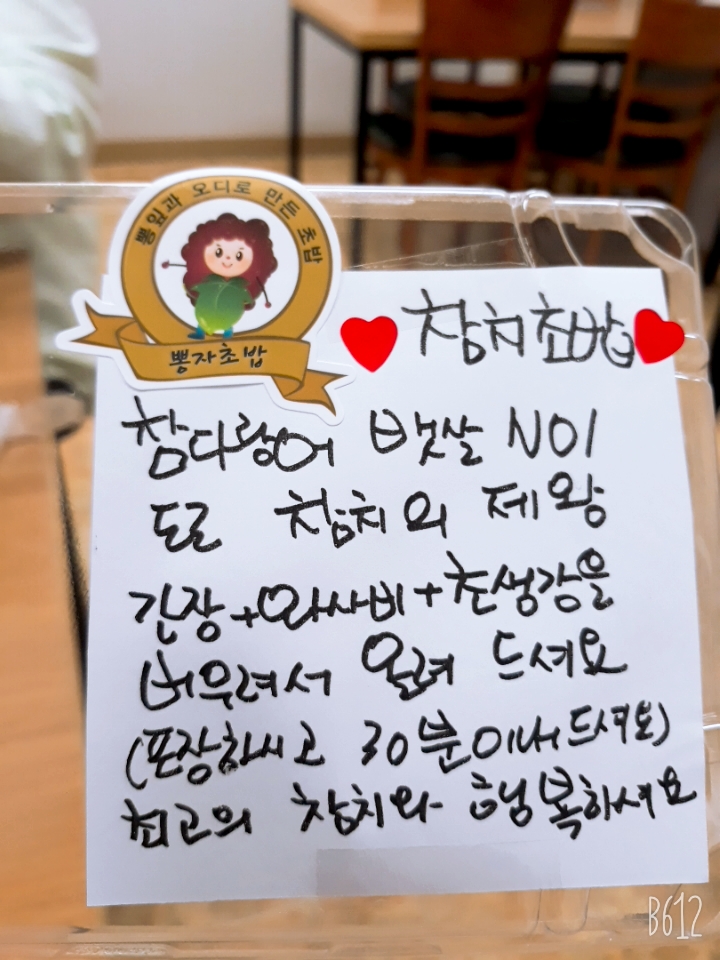 뽕잎과 오디로 만든 초밥
뽕자초밥
참치초밥
참다랑어 뱃살 NO1
도로 참치의 제왕
간장+와사비+초생강을
버우려서 올려 드셔요
(포장하시고 30분이내드셔요)
최고의 참치와 행복하셔요
B612